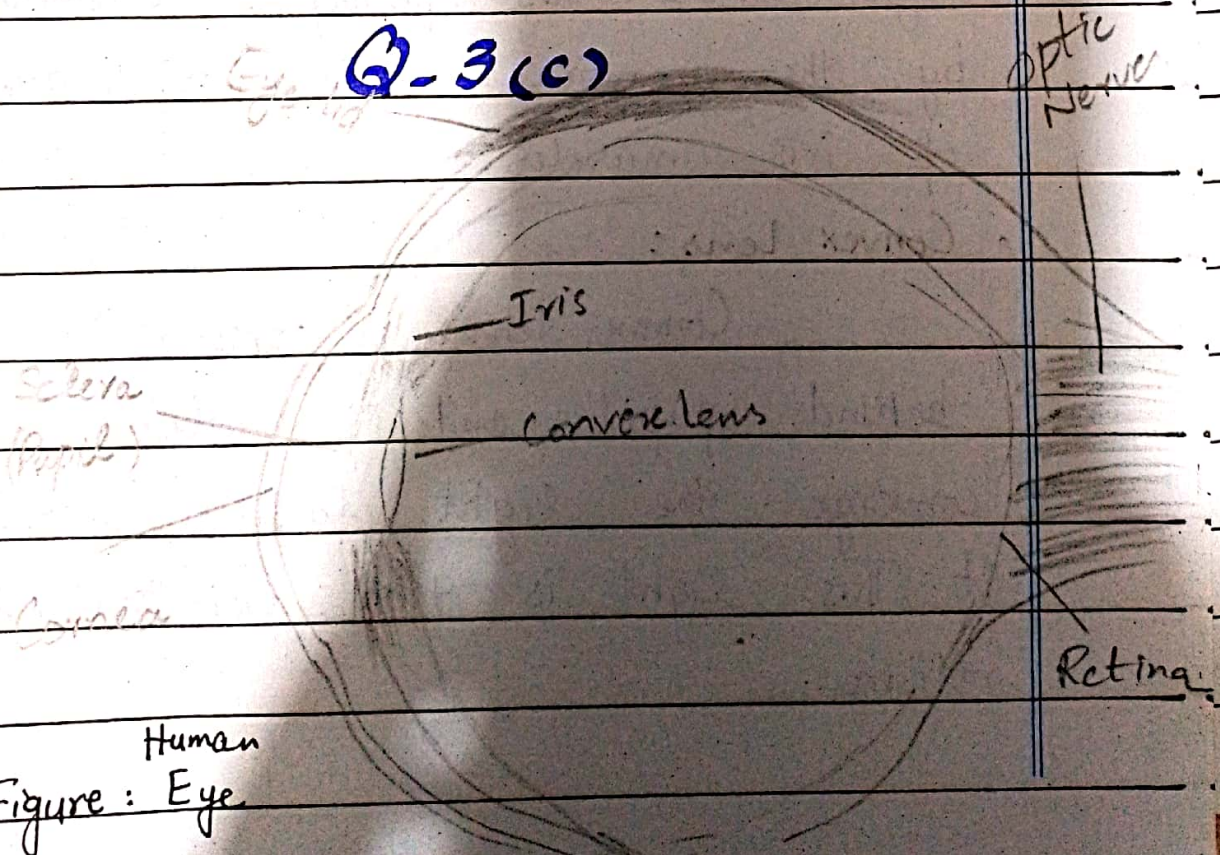 Q-3(c)
Eye lid
Optic
Nerve
Iris
Sclera
(Pupil)
Convexe lens
Cornea
Retina
Human
Figure: Eye